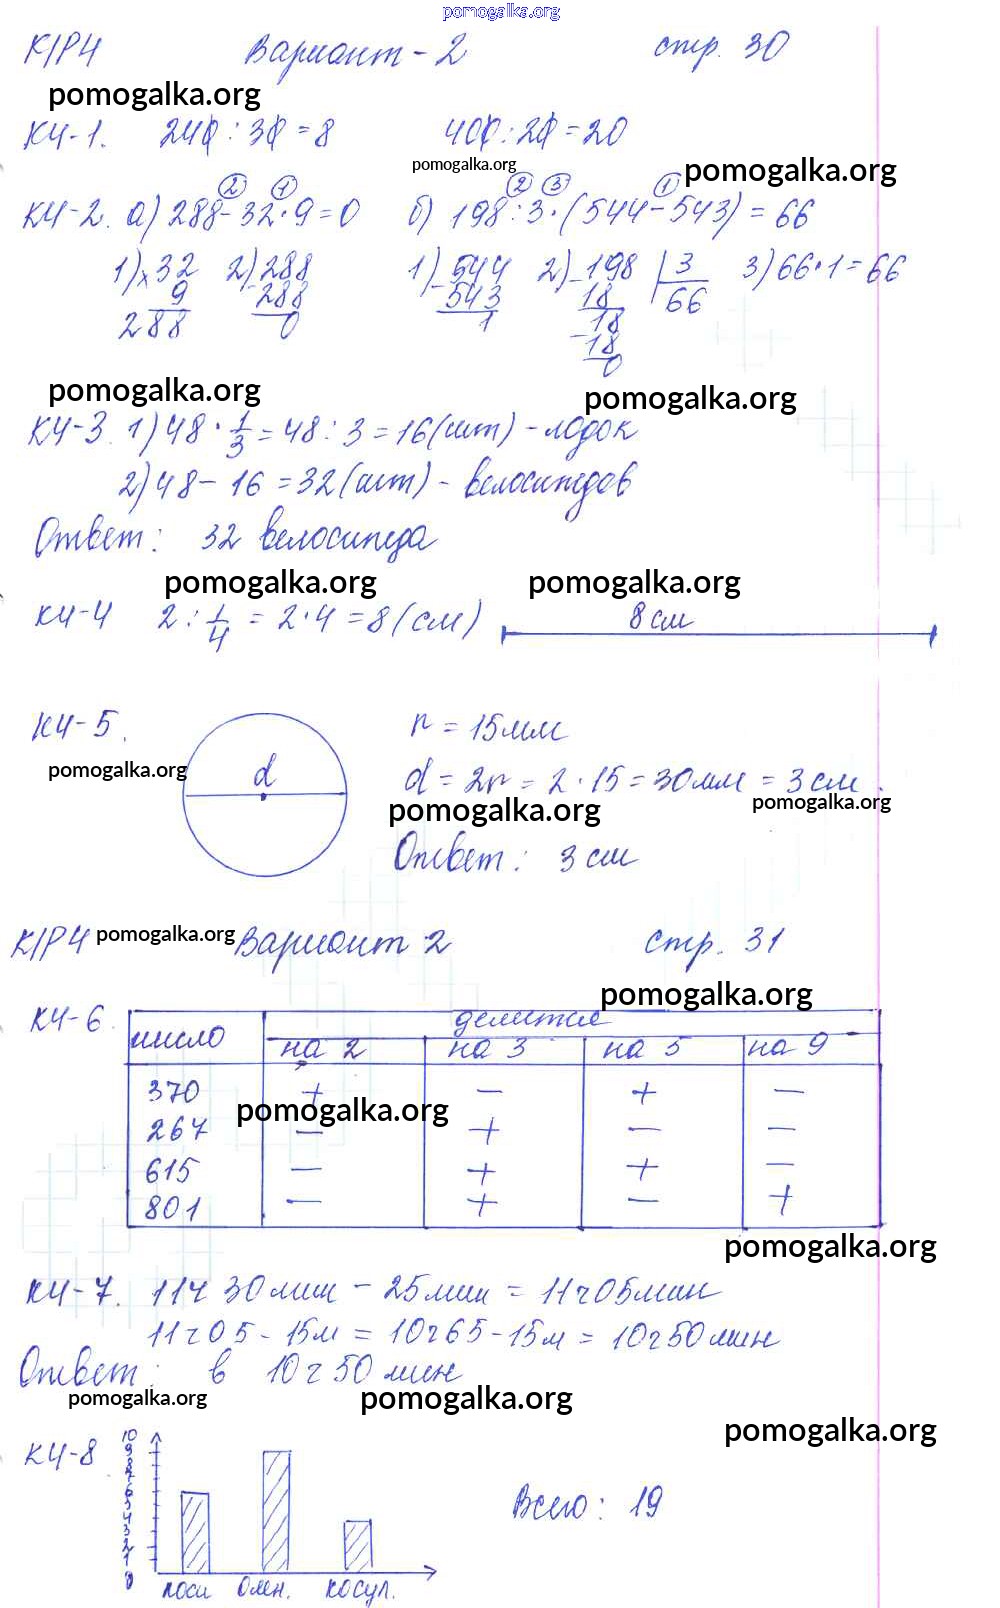 pomogalka.org
К/Р4 Вариант - 2 стр. 30
pomogalka.org
К4-1. 240 : 30 = 8 400 : 20 = 20
pomogalka.org pomogalka.org
2 1 2 3 1
К4-2. а) 288 - 32 · 9 = 0 б) 198 : 3 · (544 - 543) = 66
1) × 32 2) 288 1) - 544 2) - 198 3 3) 66 · 1 = 66
9 - 288 543 18 66
288 0 1 18
- 18
0
pomogalka.org pomogalka.org
К4-3. 1) 48 · 1/3 = 48 : 3 = 16 (шт) - лодок
2) 48 - 16 = 32 (шт) - велосипедов
Ответ: 32 велосипеда
pomogalka.org pomogalka.org
К4-4 2 : 1/4 = 2 · 4 = 8 (см) 8 см
К4-5. r = 15мм
pomogalka.org d d = 2r = 2 · 15 = 30мм = 3 см.
pomogalka.org pomogalka.org
Ответ: 3 см
К/Р4 pomogalka.org Вариант 2 стр. 31
pomogalka.org
К4-6. число делится
на 2 на 3 на 5 на 9
370 + - + -
pomogalka.org
267 - + - -
615 - + + -
801 - + - +
pomogalka.org
К4-7. 11ч 30мин - 25мин = 11ч05мин
11ч05 - 15м = 10ч65 - 15м = 10ч50мин
Ответ: в 10ч50мин
pomogalka.org pomogalka.org
pomogalka.org
К4-8 10
9
8
7
6
5
4
3
2
1
0
Всего: 19
лоси олен. косул.